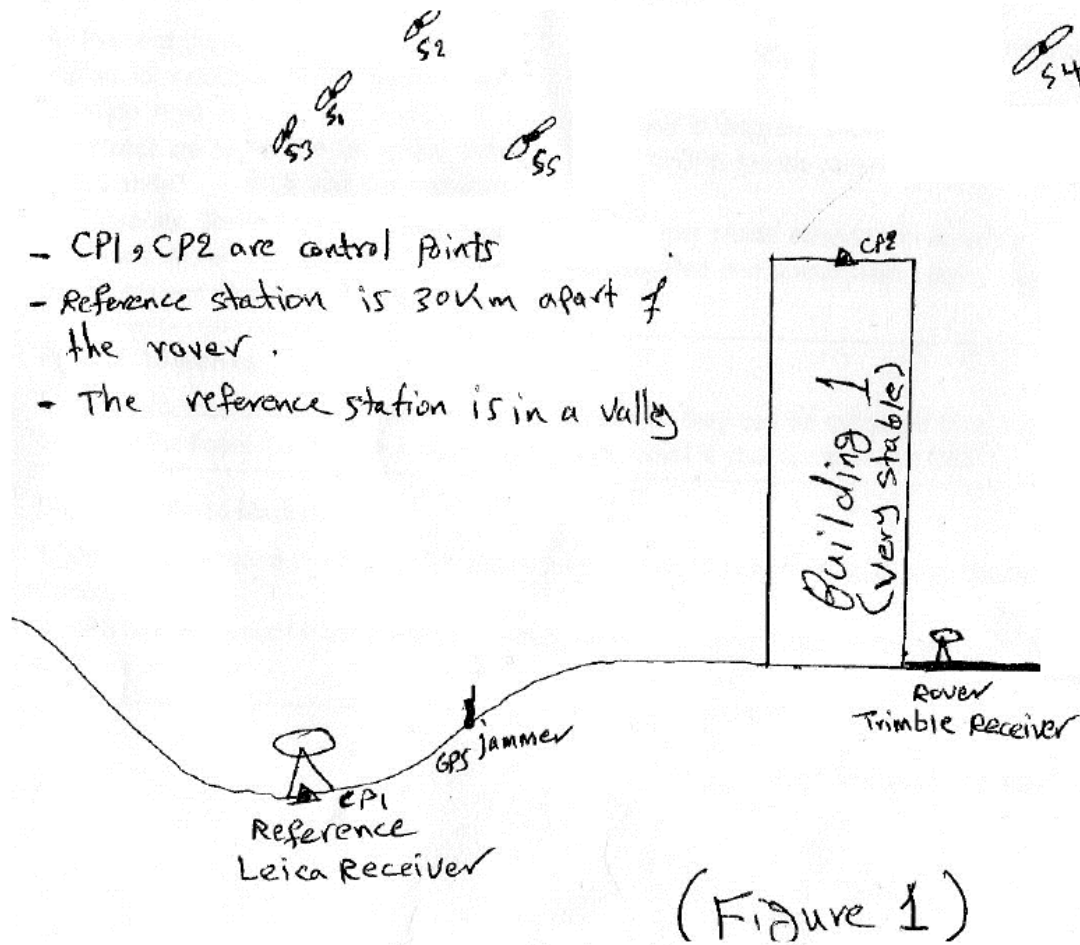 S2
S4
S1
S3
S5
- CP1, CP2 are control points
CP2
- Reference station is 30Km apart f
the rover.
- The reference station is in a valley
Building 1
(Very stable)
Rover
Trimble Receiver
GPS jammer
CP1
Reference
Leica Receiver
(Figure 1)